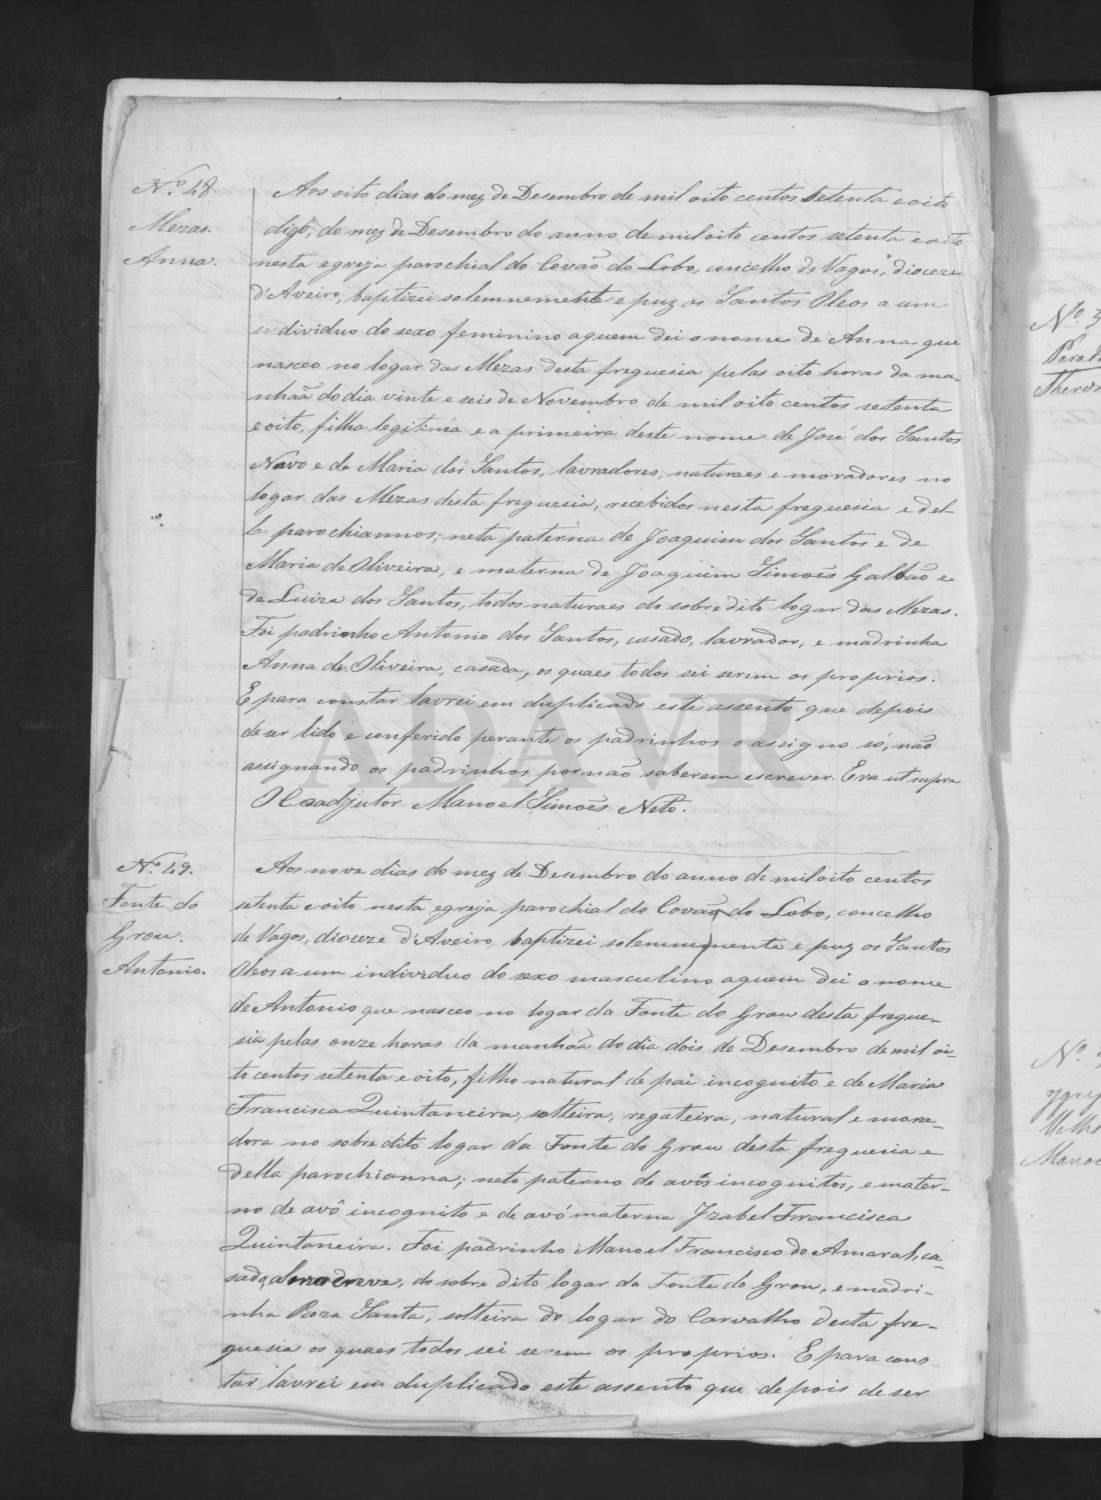 Nº 48.
Mezas.
Anna.
Aos oito dias do mez de Desembro de mil oito centos setenta e oito
digo, do mez de Desembro do anno de mil oito centos setenta e oito
nesta egreja parochial do Covão do Lobo, concelho de Vagos, dioceze
d'Aveiro, baptizei solemnemente e puz os Santos Oleos a um
individuo do sexo feminino aquem dei o nome de Anna que
nasceo no logar das Mezas desta freguesia pelas oito horas da ma-
nhaã do dia vinte e seis de Novembro de mil oito centos setenta
e oito, filha legitima e a primeira deste nome de José dos Santos
Navo e de Maria dos Santos, lavradores, naturaes e moradores no
logar das Mezas desta freguesia, recebidos nesta freguesia e del-
la parochiannos; neta paterna de Joaquim dos Santos e de
Maria de Oliveira, e materna de Joaquim Simoẽs Galvão e
de Luiza dos Santos, todos naturaes do sobredito logar das Mezas.
Foi padrinho Antonio dos Santos, casado, lavrador, e madrinha
Anna de Oliveira, casada, os quaes todos sei serem os proprios.
E para constar lavrei em duplicado este assento que depois
de ser lido e conferido perante os padrinhos o assigno só, não
assignando os padrinhos por não saberem escrever. Era ut supra
O Coadjutor Manoel Simoẽs Neto.
Nº 49.
Fonte do
Grou.
Antonio.
Aos nove dias do mez de Desembro do anno de mil oito centos
setenta e oito nesta egreja parochial do Covão do Lobo, concelho
de Vagos, dioceze d'Aveiro, baptizei solemnemente e puz os Santos
Oleos a um individuo do sexo masculino aquem dei o nome
de Antonio que nasceo no logar da Fonte do Grou desta fregue-
sia pelas onze horas da manhaã do dia dois de Desembro de mil oi-
to centos setenta e oito, filho natural de pai incognito e de Maria
Francisca Quintaneira, solteira, regateira, natural e mora-
dora no sobredito logar da Fonte do Grou desta freguesia e
della parochianna; neto paterno de avós incognitos, e mater-
no de avô incognito e de avó materna Izabel Francisca
Quintaneira. Foi padrinho Manoel Francisco do Amaral, ca-
sado, do sobre dito logar da Fonte do Grou, e madri-
nha Roza Santa, solteira do logar do Carvalho desta fre-
guesia os quaes todos sei serem os proprios. E para cons-
tar lavrei em duplicado este assento que depois de ser
ADAVR
Nº 3
Nº
Manoe